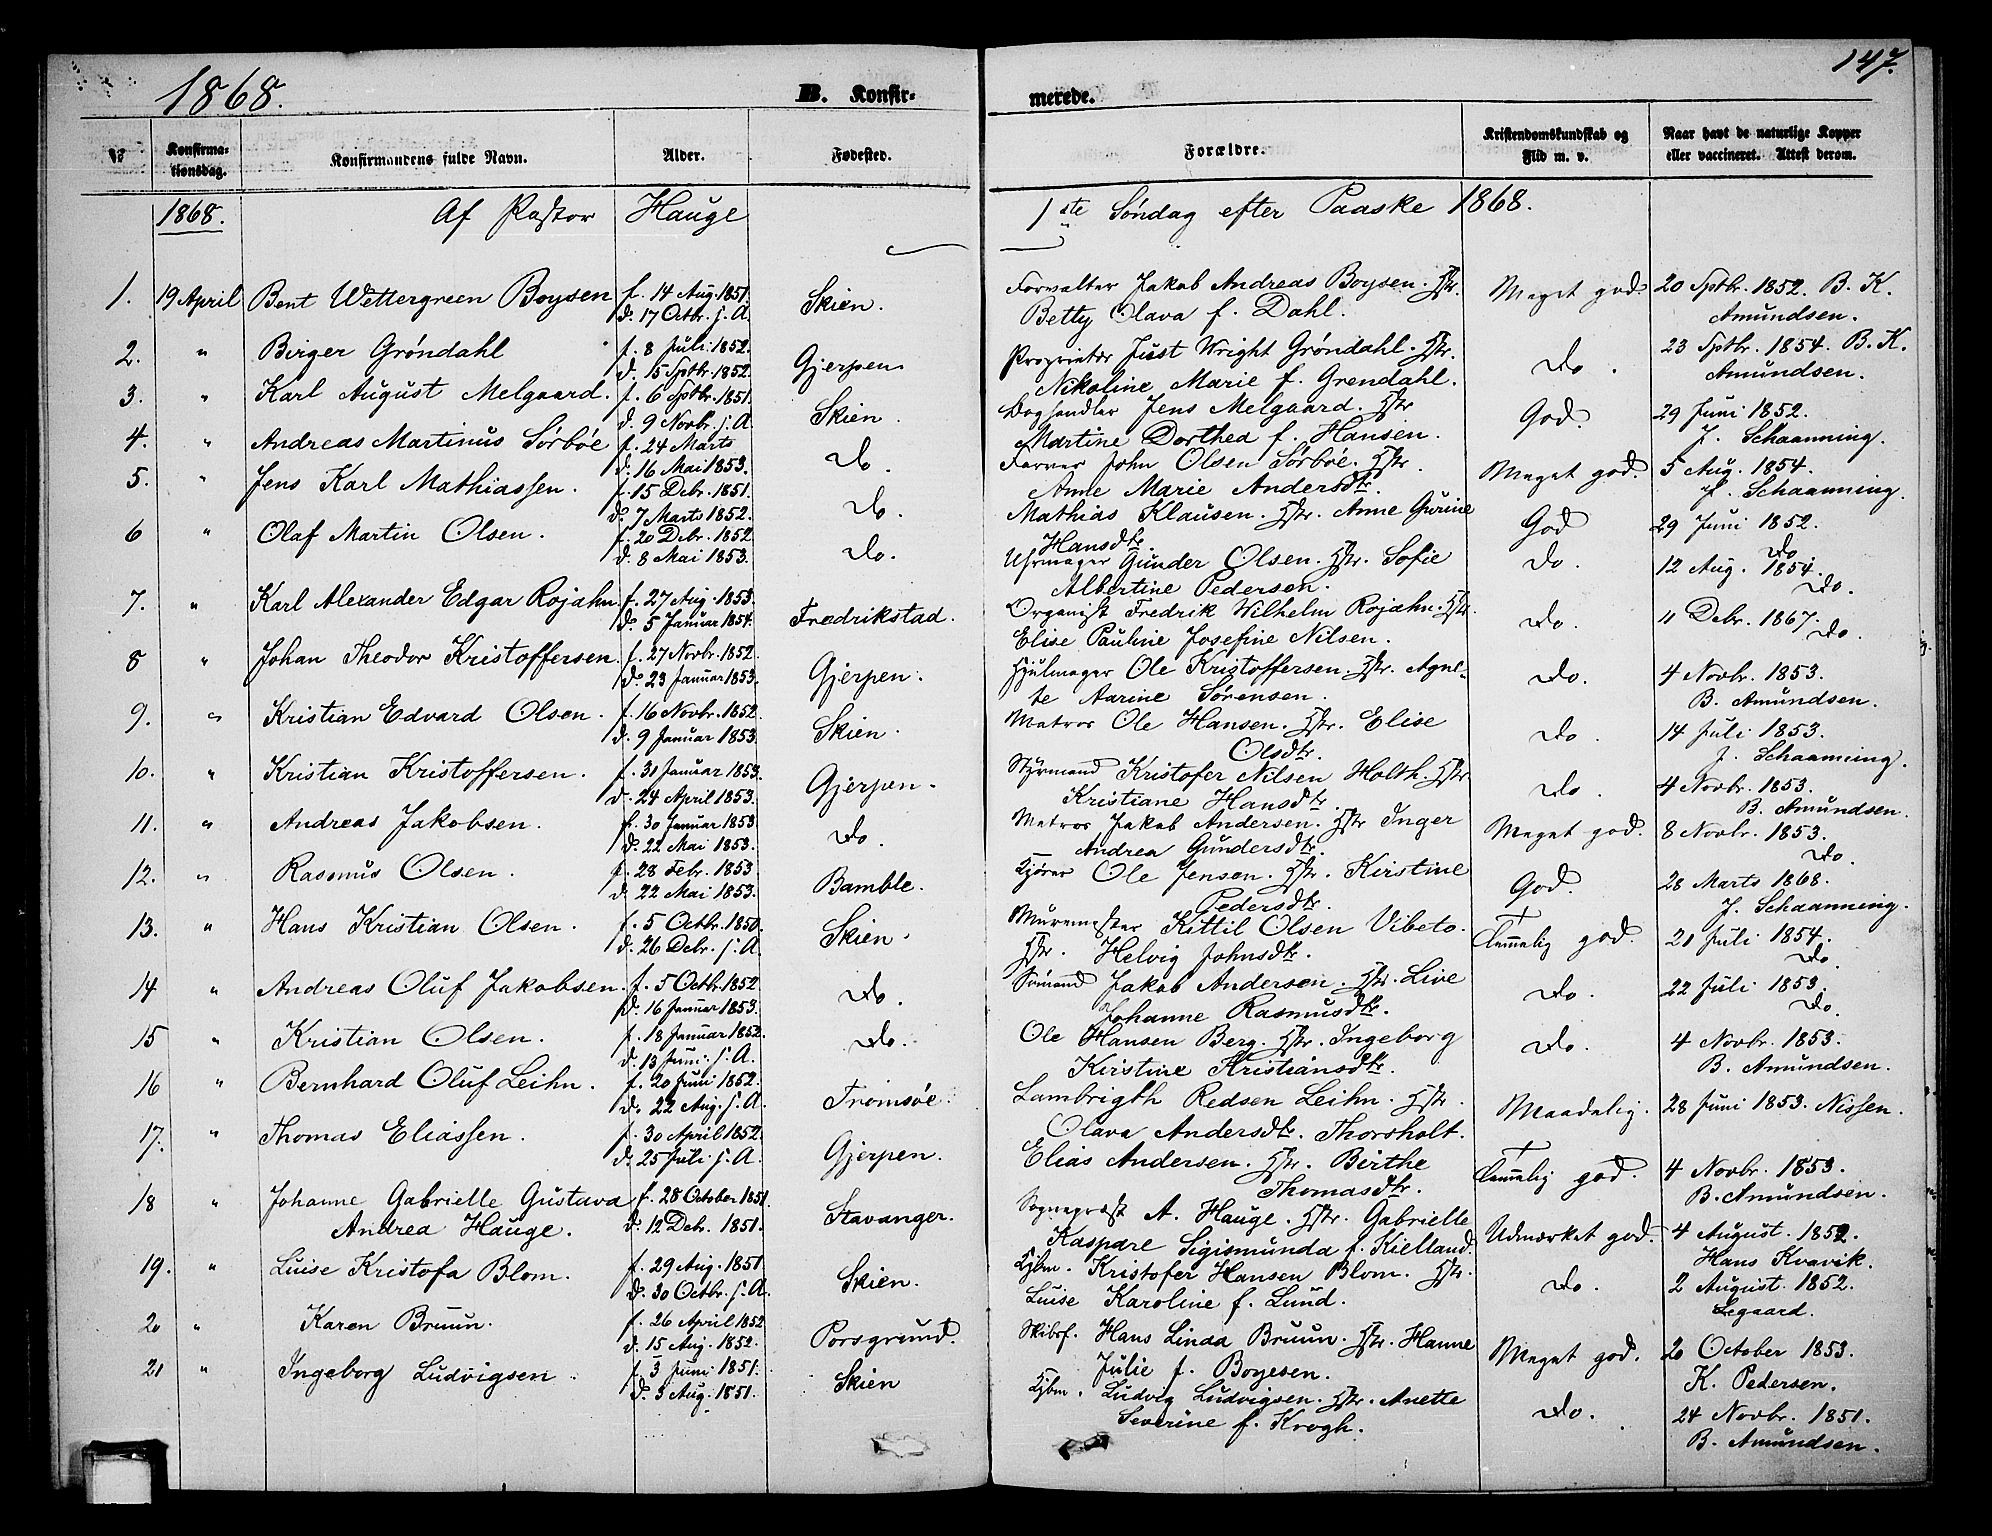 147.
1868.
B. Konfir-
merede.
Konfirma-
tionsdag.
Konfirmandens fulde Navn.
Alder.
Fødested.
Forældre.
Kristendomskundskab og
Flid m. v.
Naar havt de naturlige Kopper
eller vaccineret. Attest derom.
1868.
Af Pastor Hauge
1ste Søndag efter Paaske 1868.
1. 19 April Bent Wettergreen Boysen f. 14 Aug. 1851. Skien. Forvalter Jakob Andreas Boysen. Hstr. Meget god. 20 Sptbr. 1852. B. K.
d. 17 Octbr. s. A. Betty Olava f. Dahl. Amundsen.
2. " Birger Gröndahl f. 8 Juli 1852. Gjerpen Proprietær Just Wright Gröndahl. Hstr. Do. 23 Sptbr. 1854. B. K.
d. 15 Sptbr. 1852. Nikoline Marie f. Grendahl. Amundsen.
3. " Karl August Melgaard. f. 6 Sptbr. 1851. Skien. Boghandler Jens Melgaard. Hstr God. 29 Juni 1852.
d. 9 Novbr. s. A Martine Dorthea f. Hansen. J. Schaanning.
4. " Andreas Martinus Sörböe f. 24 Marts Do. Farver John Olsen Sörböe. Hstr. Meget god. 5 Aug. 1854.
d. 16 Mai 1853. Anne Marie Andersdtr. J. Schaanning.
5. " Jens Karl Mathiassen. f. 15 Debr. 1851. Do. Mathias Klausen. Hstr. Anne Gurine God 29 Juni 1852.
d. 7 Marts 1852. Hansdtr. Do
6 " Olaf Martin Olsen. f. 20 Debr. 1852 Do. Uhrmager Gunder Olsen. Hstr. Sofie Do. 12 Aug. 1854.
d. 8 Mai 1853. Albertine Pedersen. Do.
7. " Karl Alexander Edgar Rojahn f. 27 Aug. 1853. Fredrikstad. Organist Fredrik Wilhelm Rojahn. Hstr. Do. 11 Debr. 1867.
d. 5 Januar 1854. Elise Pauline Josefine Nilsen. Do.
8 " Johan Theodor Kristoffersen f. 27 Novbr. 1852. Gjerpen. Hjulmager Ole Kristoffersen. Hstr. Agne- Do. 4 Novbr. 1853.
d. 23 Januar 1853. te Aarine Sörensen. B. Amundsen.
9. " Kristian Edvard Olsen. f. 16 Novbr. 1852. Skien. Matros Ole Hansen. Hstr. Elise Do. 14 Juli 1853.
d. 9 Januar 1853. Olsdtr. J. Schaanning.
10. " Kristian Kristoffersen. f. 31 Januar 1853. Gjerpen. Styrmand Kristofer Nilsen Holth. Hstr Do. 4 Novbr. 1853.
d. 24 April 1853. Kristiane Hansdtr. B. Amundsen.
11. " Andreas Jakobsen. f. 30 Januar 1853 Do. Matros Jakob Andersen. Hstr Inger Meget god. 8 Novbr. 1853.
d. 22 Mai 1853. Andrea Gundersdtr. Do.
12. " Rasmus Olsen. f. 28 Febr. 1853 Bamble. Kjörer Ole Jensen. Hstr. Kirstine God. 28 Marts 1868.
d. 22 Mai 1853. Pedersdtr. J. Schaanning.
13. " Hans Kristian Olsen. f. 5 Octbr. 1850. Skien. Murermester Kittil Olsen Vibeto. Temelig god. 21 Juli 1854.
d. 26 Debr. s. A. Hstr. Helvig Johnsdtr. Do.
14 " Andreas Oluf Jakobsen. f. 5 Octbr. 1852 Do. Sömand Jakob Andersen. Hstr. Live Do. 22 Juli 1853.
d. 16 Januar 1853. Johanne Rasmusdtr. Do.
15 " Kristian Olsen. f. 18 Januar 1852. Do. Ole Hansen Berg. Hstr. Ingeborg Do. 4 Novbr. 1853.
d. 13 Juni. s. A. Kirstine Kristiansdtr. B. Amundsen.
16 " Bernhard Oluf Leihn. f. 20 Juni 1852. Tromsöe. Lambrigth Redsen Leihn. Hstr. Maadelig. 28 Juni 1853. Nissen.
d. 22 Aug. s. A. Olava Andersdtr. Thorsholt.
17. " Thomas Eliassen. f. 30 April 1852. Gjerpen. Elias Andersen. Hstr. Birthe Temelig god. 4 Novbr. 1853.
d. 25 Juli s. A. Thomasdtr. B. Amundsen.
18 " Johanne Gabrielle Gustava f. 28 October 1851. Stavanger. Sognepræst A. Hauge. Hstr. Gabrielle Udmærket god. 4 August. 1852.
Andrea Hauge. d. 12 Debr. 1851. Kaspare Sigismunda f. Kielland. Hans Kvavik.
19. " Luise Kristofa Blom. f. 29 Aug. 1851 Skien. Kjbm. Kristofer Hansen Blom. Hstr. Do. 2 August. 1852.
d. 30 Octbr. s. A. Luise Karoline f. Lund. Legaard.
20 " Karen Bruun. f. 26 April 1852 Porsgrund. Skibsf. Hans Linda Bruun. Hstr. Hanne Meget god. 20 October 1853.
d. 15 Aug. 1852. Julie f. Boyesen. K. Pedersen.
21 " Ingeborg Ludvigsen. f. 3 Juni 1851. Skien Kjbm. Ludvig Ludvigsen. Hstr. Anette Do. 24 Novbr. 1851.
d. 3 Aug. 1851. Severine f. Krogh. B. Amundsen.